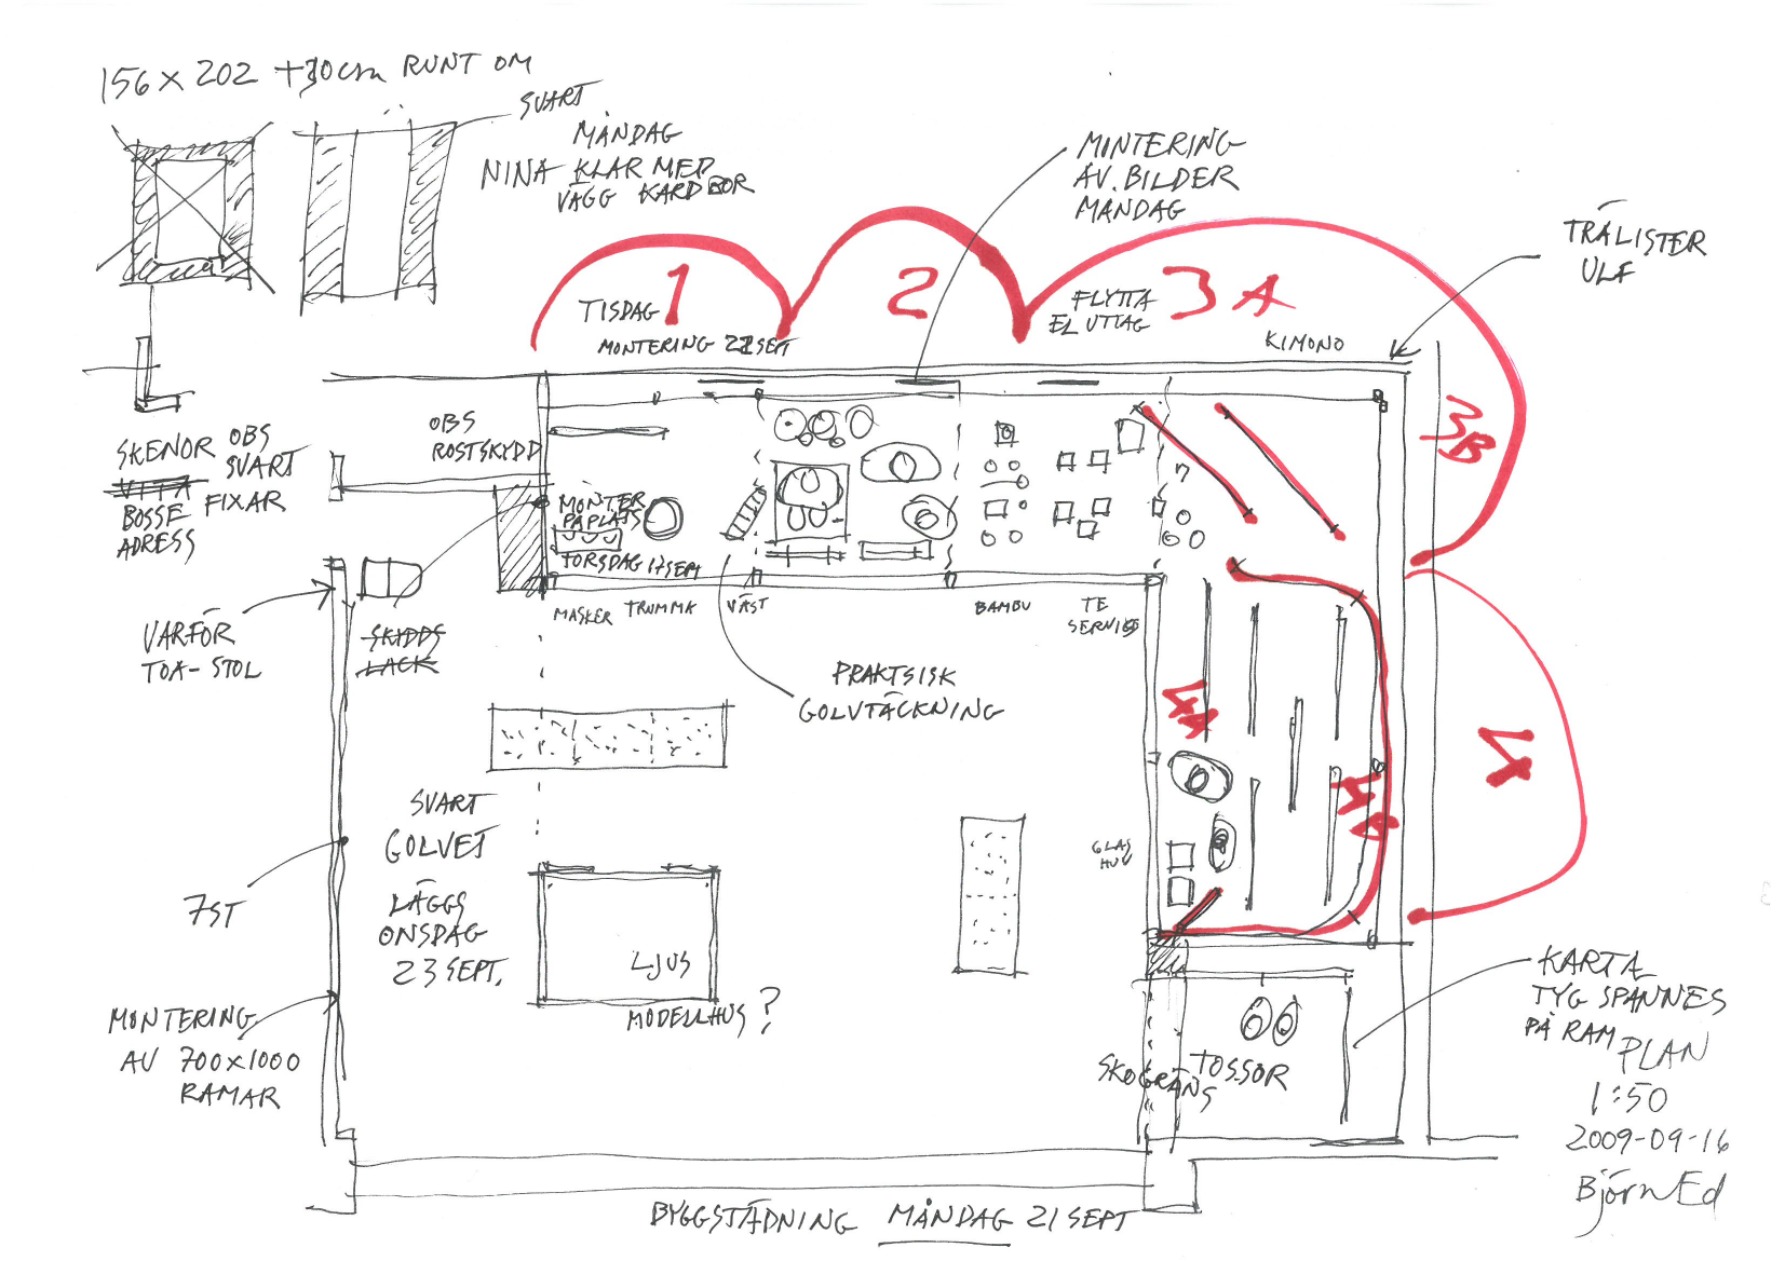 156 x 202 +30cm RUNT OM
SVART
MÅNDAG
NINA KLAR MED
VÄGG KARDBOR
MINTERING
AV. BILDER
MÅNDAG
TRÄLISTER
ULF
1
2
3A
3B
TISDAG
MONTERING 22 SEPT
FLYTTA
EL UTTAG
KIMONO
OBS
ROSTSKYDD
SKENOR OBS
SVART
VITA FIXAR
BOSSE
ADRESS
MONTER
PÅ PLATS
TORSDAG 17 SEPT
MASKER TRUMMA VÄST
BAMBU
TE
SERVIS
VARFÖR
TOA-STOL
SKYDDS
LACK
PRAKTSISK
GOLVTÄCKNING
4A
4B
4
SVART
GOLVET
LÄGGS
ONSDAG
23 SEPT.
GLAS
HUV
7ST
LJUS
MODELLHUS?
MONTERING
AV 700x1000
RAMAR
KARTA
TYG SPANNES
PÅ RAM
TOSSOR
SKOGRÄNS
PLAN
1:50
2009-09-16
Björn Ed
BYGGSTÄDNING MÅNDAG 21 SEPT